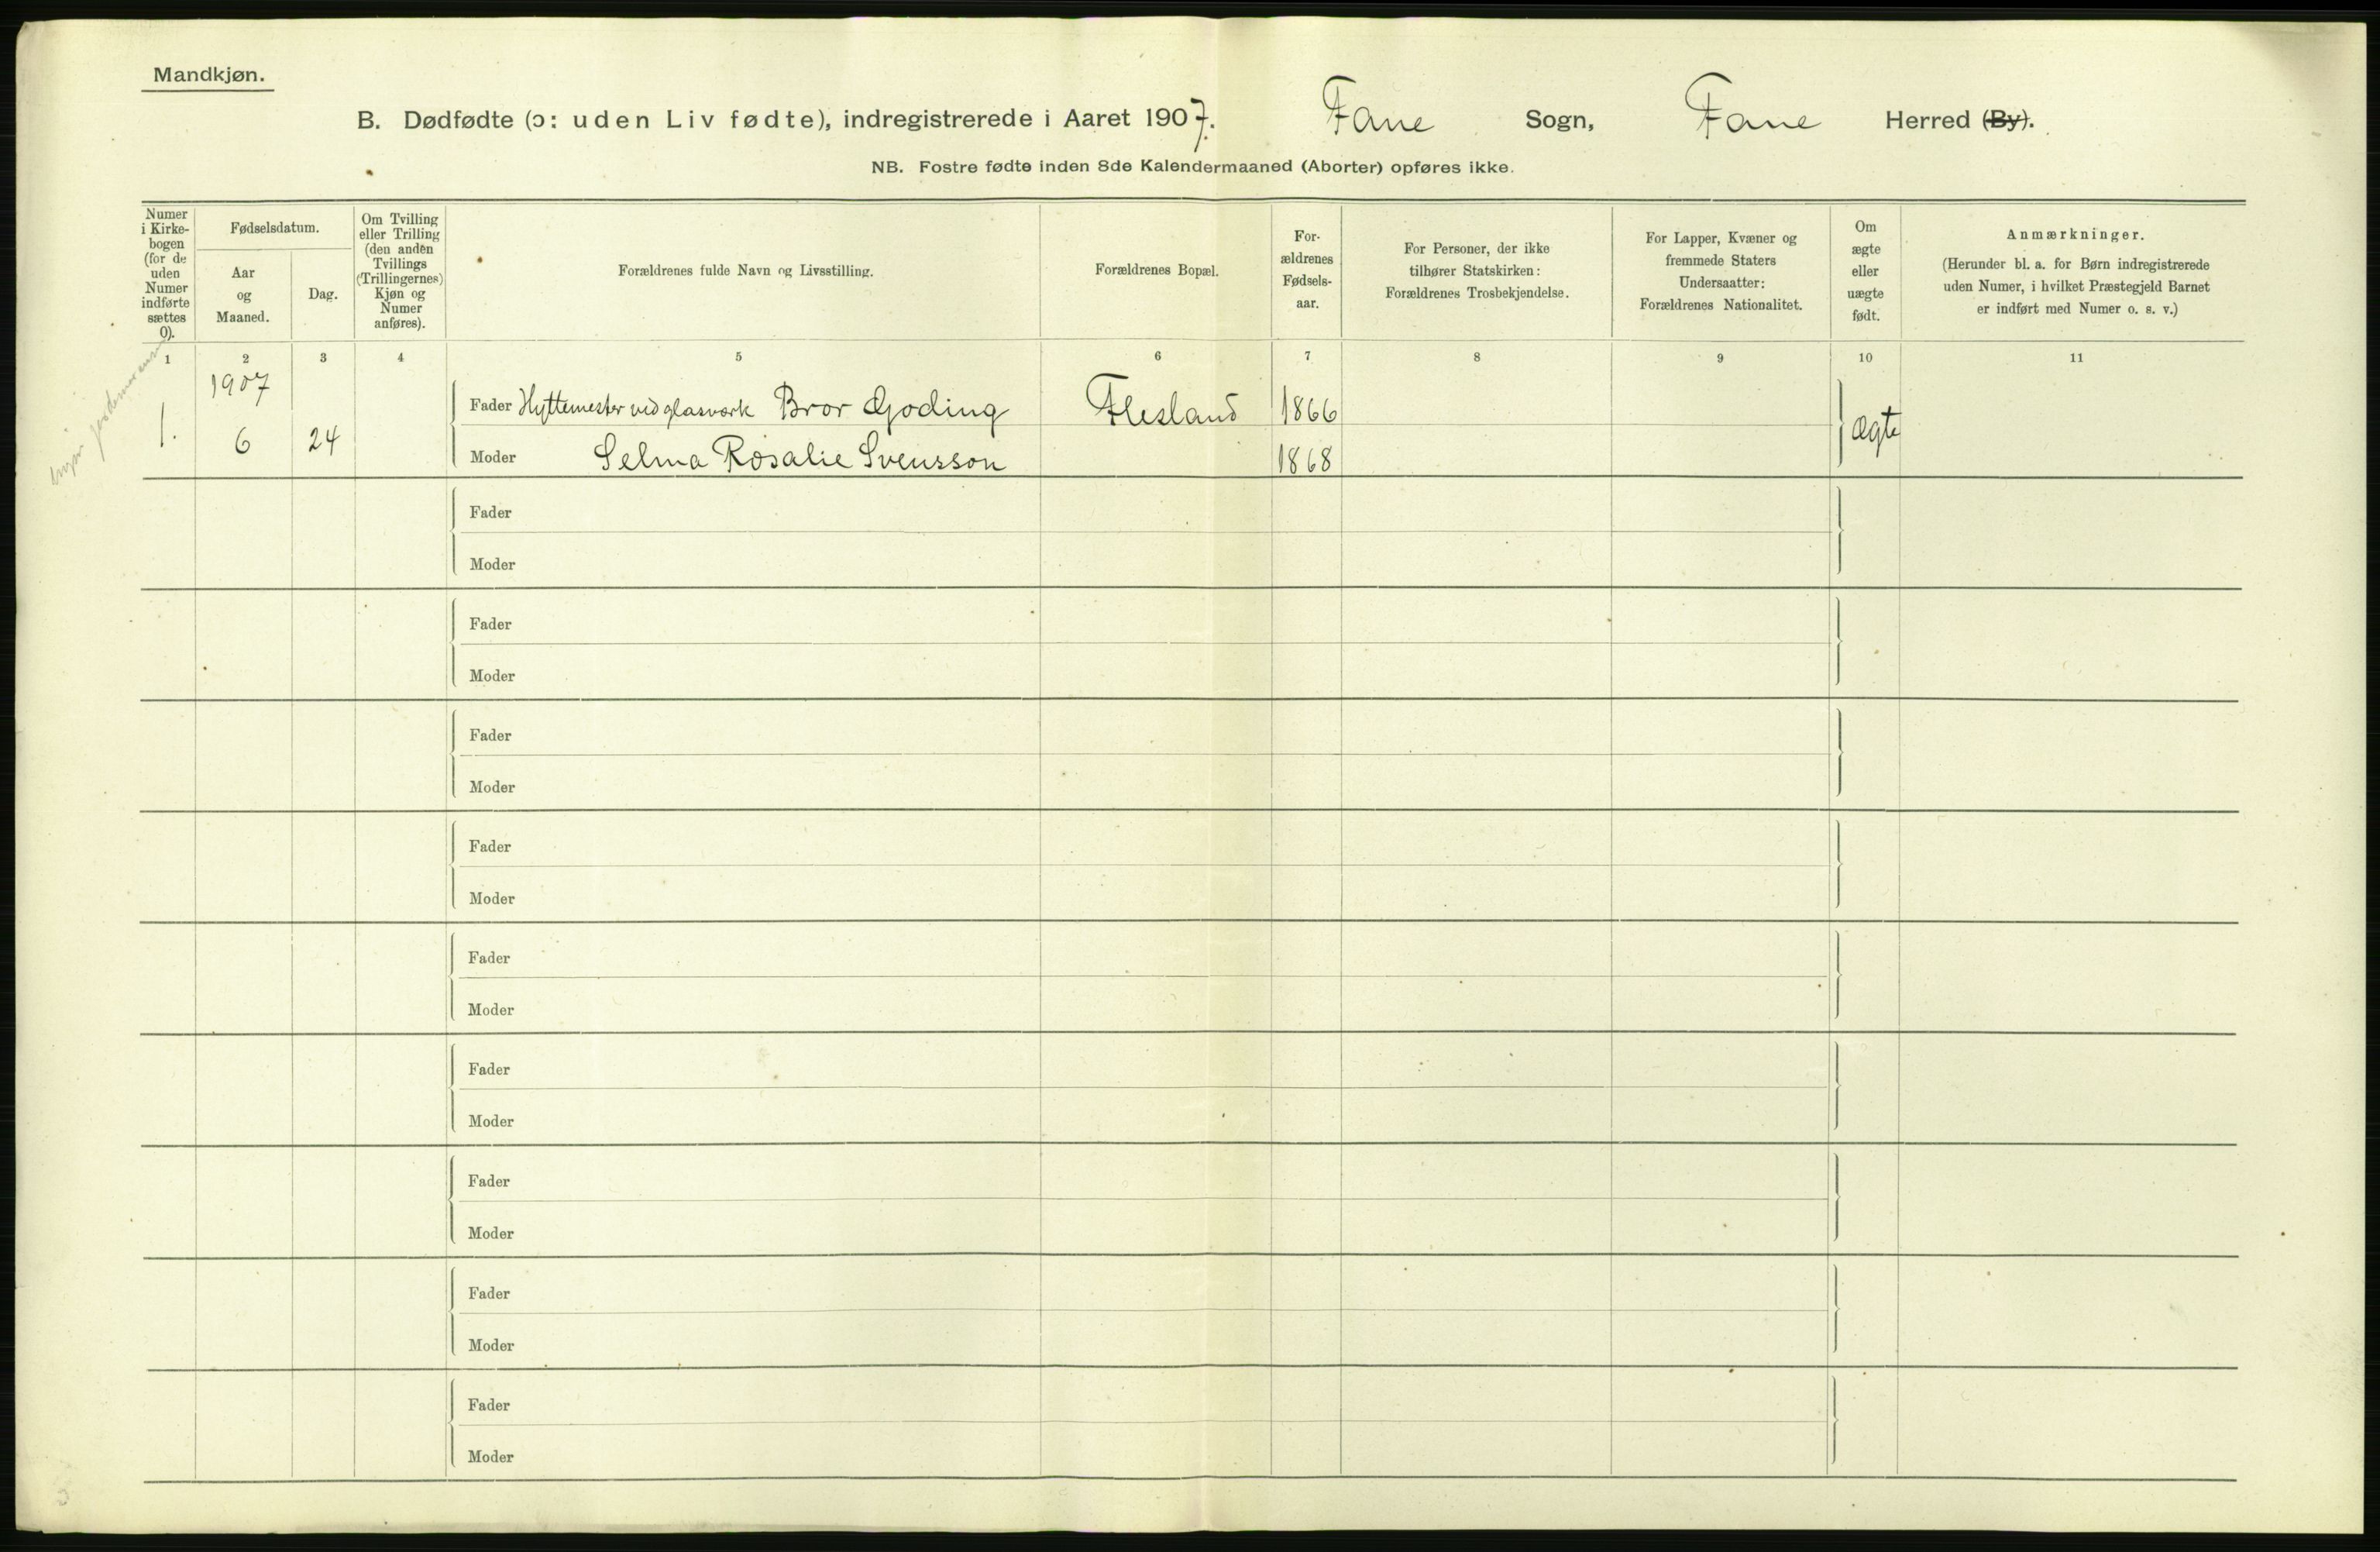 Mandkjøn.
B. Dødfødte (ɔ: uden Liv fødte), indregistrerede i Aaret 1907. Fane Sogn, Fane Herred (By).
NB. Fostre fødte inden 8de Kalendermaaned (Aborter) opføres ikke.
Numer
i Kirke-
bogen
(for de
uden
Numer
indførte
sættes
0).
Fødselsdatum.
Aar
og
Maaned.
Dag.
Om Tvilling
eller Trilling
(den anden
Tvillings
(Trillingernes)
Kjøn og
Numer
anføres).
Forældrenes fulde Navn og Livsstilling.
Forældrenes Bopæl.
For-
ældrenes
Fødsels-
aar.
For Personer, der ikke
tilhører Statskirken:
Forældrenes Trosbekjendelse.
For Lapper, Kvæner og
fremmede Staters
Undersaatter:
Forældrenes Nationalitet.
Om
ægte
eller
uægte
født.
Anmærkninger.
(Herunder bl. a. for Børn indregistrerede
uden Numer, i hvilket Præstegjeld Barnet
er indført med Numer o. s. v.)
1 2 3 4 5 6 7 8 9 10 11
1907
Fader Hyttemester ved glasværk Bror Goding Flesland 1866
1. 6 24 ægte
Moder Selma Rosalie Svensson 1868
Fader
Moder
Fader
Moder
Fader
Moder
Fader
Moder
Fader
Moder
Fader
Moder
Fader
Moder
Fader
Moder
Fader
Moder